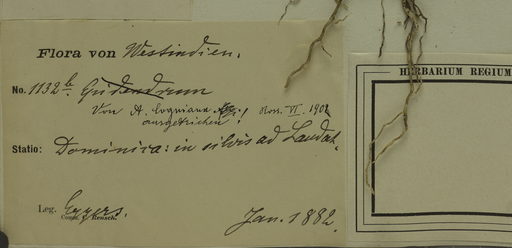 Flora von Westindien.
No. 1132 b. Epidendrum
Von A. Cogniaux ! Nov. VI. 1902
ausgestrichen!
Statio: Dominica: in silvis ad Laudat.
Leg. Eggers.
Jan. 1882.
HERBARIUM REGIUM